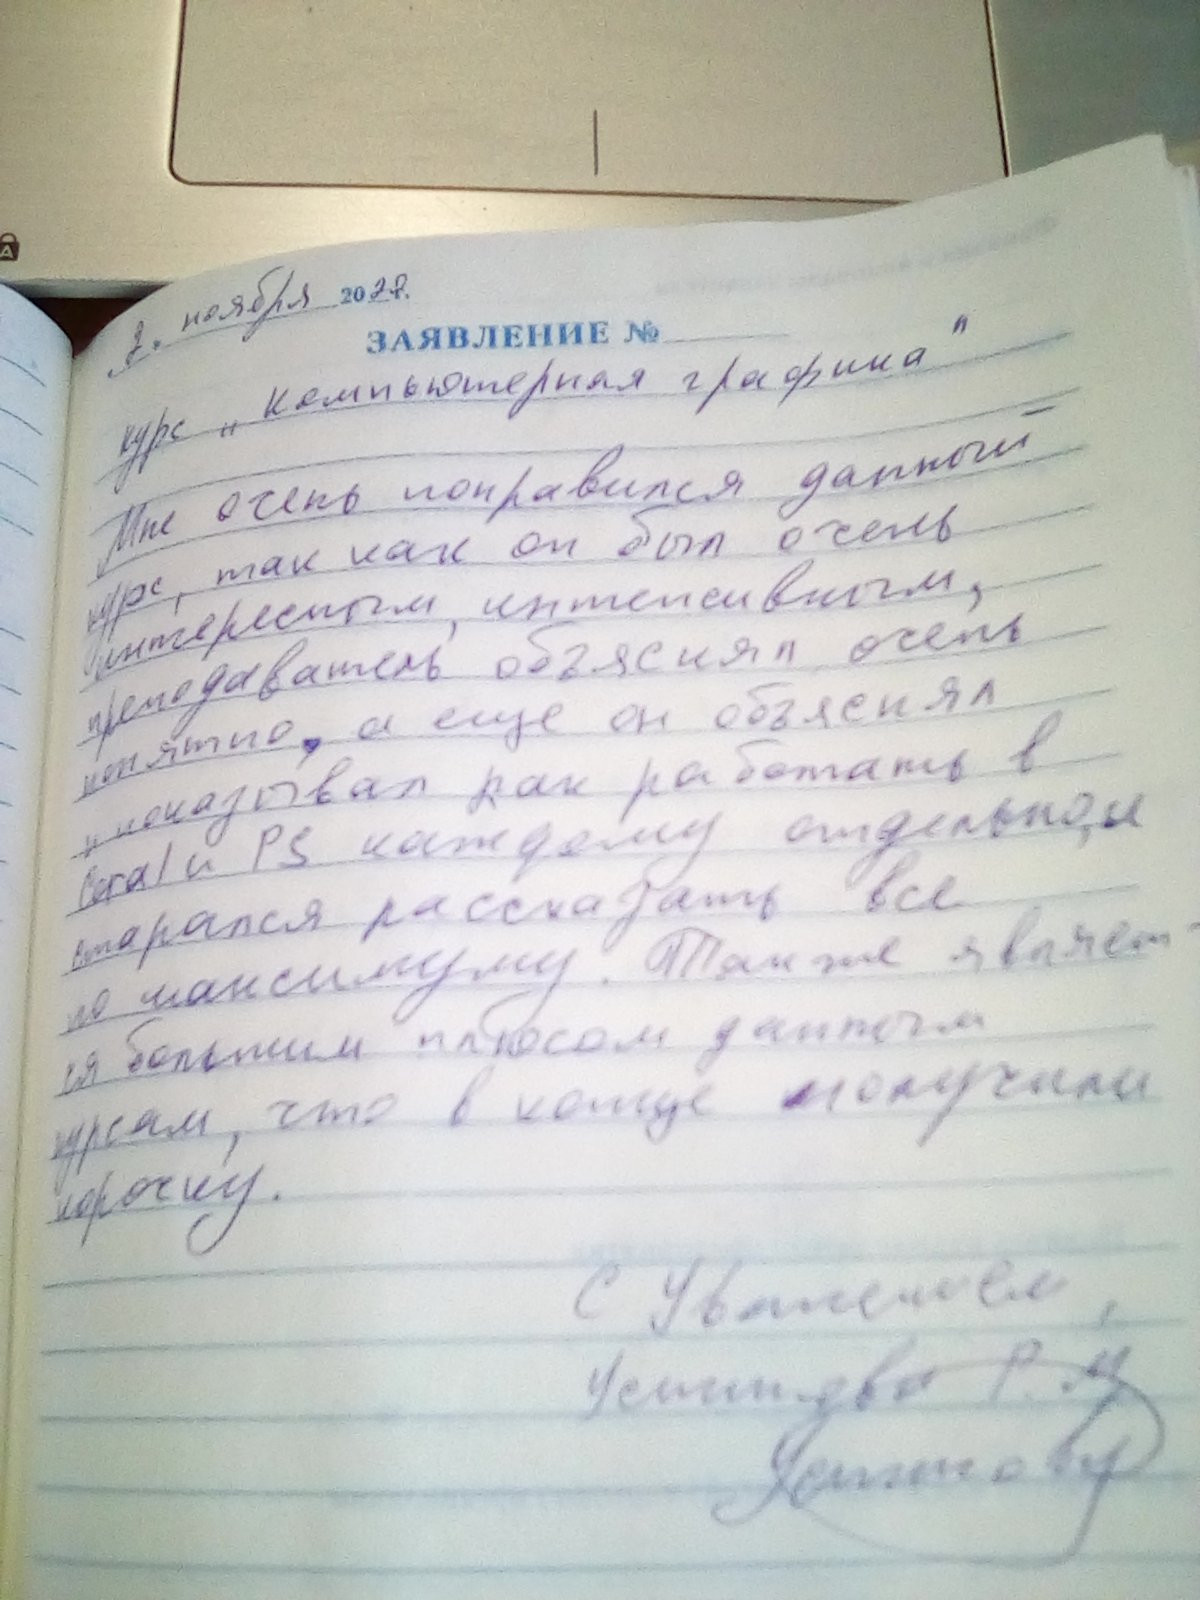 2. ноября 20 г.
ЗАЯВЛЕНИЕ №
курс „Компьютерная графика"
Мне очень понравился данный
курс, так как он был очень
интересным, интенсивным,
преподаватель объяснял очень
понятно, а еще он объяснял
и показывал как работать в
Coral и PS каждому отдельно, и
старался рассказать все
по максимуму. Также являет-
ся большим плюсом данным
курсам, что в конце получили
корочку.
С Уважением,
Р. И